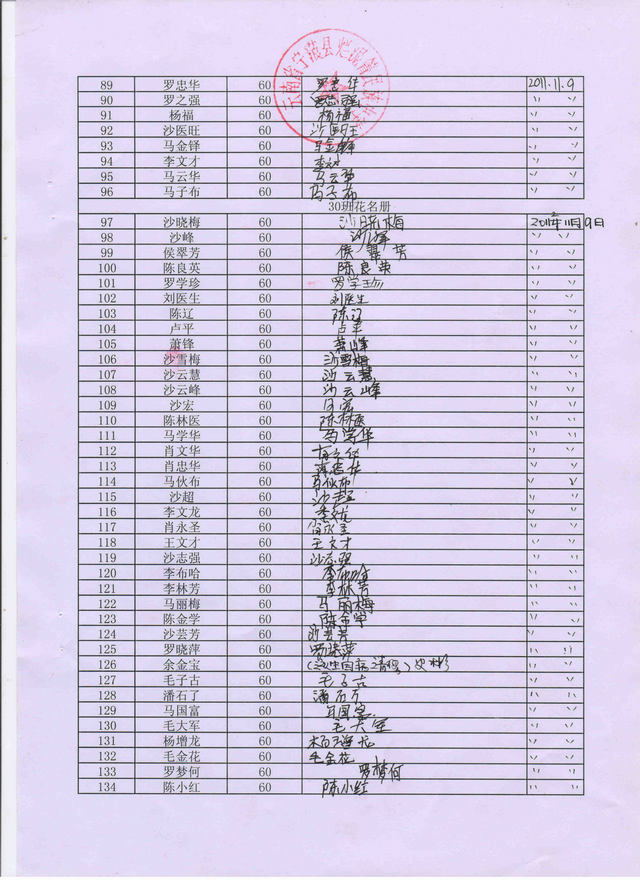 云南省宁蒗县烂泥箐民族
89 罗忠华 60 罗忠华 2011.11.9
90 罗之强 60 罗之强 〃 〃
91 杨福 60 杨福 〃 〃
92 沙医旺 60 沙医旺 〃 〃
93 马金铎 60 马金铎 〃 〃
94 李文才 60 李 〃 〃
95 马云华 60 马云华 〃 〃
96 马子布 60 马子布 〃 〃
30班花名册
97 沙晓梅 60 沙晓梅 2011年11月9日
98 沙峰 60 沙峰 〃 〃
99 侯翠芳 60 侯翠芳 〃 〃
100 陈良英 60 陈良英 〃 〃
101 罗学珍 60 罗学珍 〃 〃
102 刘医生 60 刘医生 〃 〃
103 陈辽 60 陈辽 〃 〃
104 卢平 60 卢平 〃 〃
105 萧锋 60 萧峰 〃 〃
106 沙雪梅 60 沙雪梅 〃 〃
107 沙云慧 60 沙云慧 〃 〃
108 沙云峰 60 沙云峰 〃 〃
109 沙宏 60 〃 〃
110 陈林医 60 陈林医 〃 〃
111 马学华 60 马学华 〃 〃
112 肖文华 60 肖文华 〃 〃
113 肖忠华 60 忠华 〃 〃
114 马伙布 60 马伙布 〃 〃
115 沙超 60 沙超 〃 〃
116 李文龙 60 李文龙 〃 〃
117 肖永圣 60 肖永圣 〃 〃
118 王文才 60 王文才 〃 〃
119 沙志强 60 沙志强 〃 〃
120 李布哈 60 李布哈 〃 〃
121 李林芳 60 李林芳 〃 〃
122 马丽梅 60 马丽梅 〃 〃
123 陈金学 60 陈金学 〃 〃
124 沙芸芳 60 沙芸芳 〃 〃
125 罗晓萍 60 罗晓萍 〃 〃
126 余金宝 60 (学生因病请假) 〃 〃
127 毛子古 60 毛子古 〃 〃
128 潘石了 60 潘石了 〃 〃
129 马国富 60 马国富 〃 〃
130 毛大军 60 毛大军 〃 〃
131 杨增龙 60 杨增龙 〃 〃
132 毛金花 60 毛金花 〃 〃
133 罗梦何 60 罗梦何 〃 〃
134 陈小红 60 陈小红 〃 〃